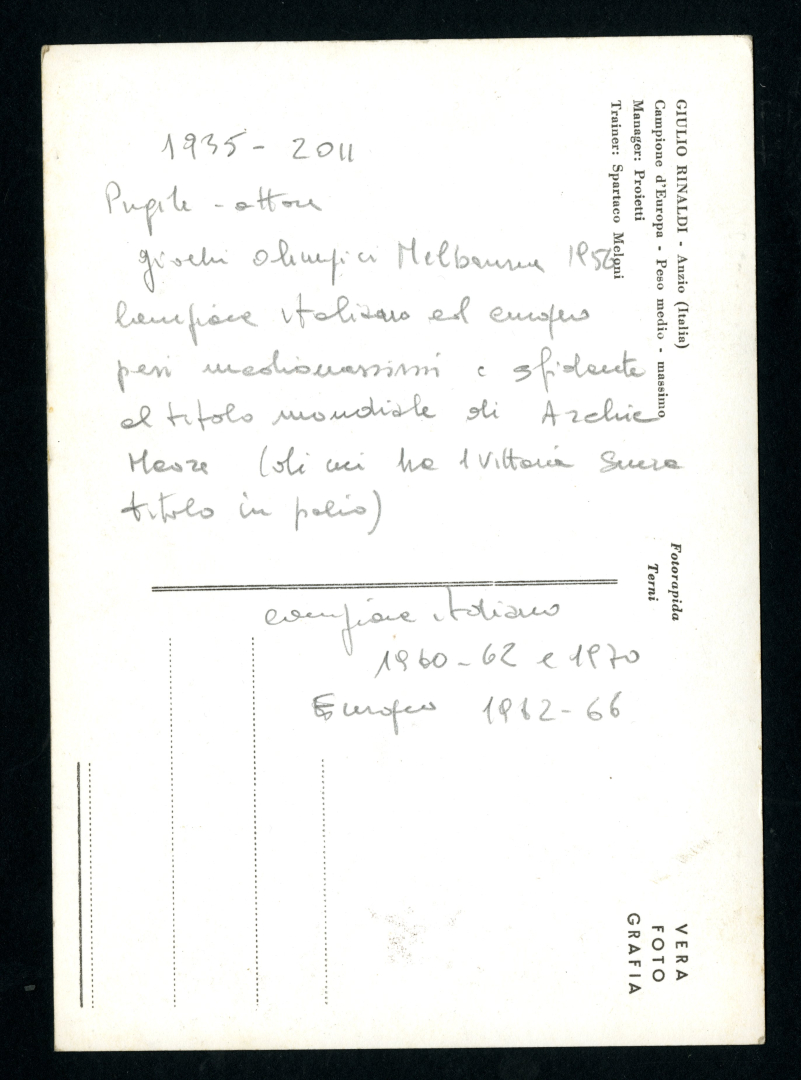 GIULIO RINALDI - Anzio (Italia)
Campione d'Europa - Peso medio - massimo
Manager: Proietti
Trainer: Spartaco Meloni
1935 - 2011
Pugile - attore
giochi olimpici Melbourne 1956
Campione italiano ed europeo
pesi mediomassimi e sfidante
al titolo mondiale di Archie
Moore (di cui ha 1 vittoria senza
titolo in palio)
Fotorapida
Terni
campione italiano
1960-62 e 1970
Europeo 1962-66
VERA
FOTO
GRAFIA